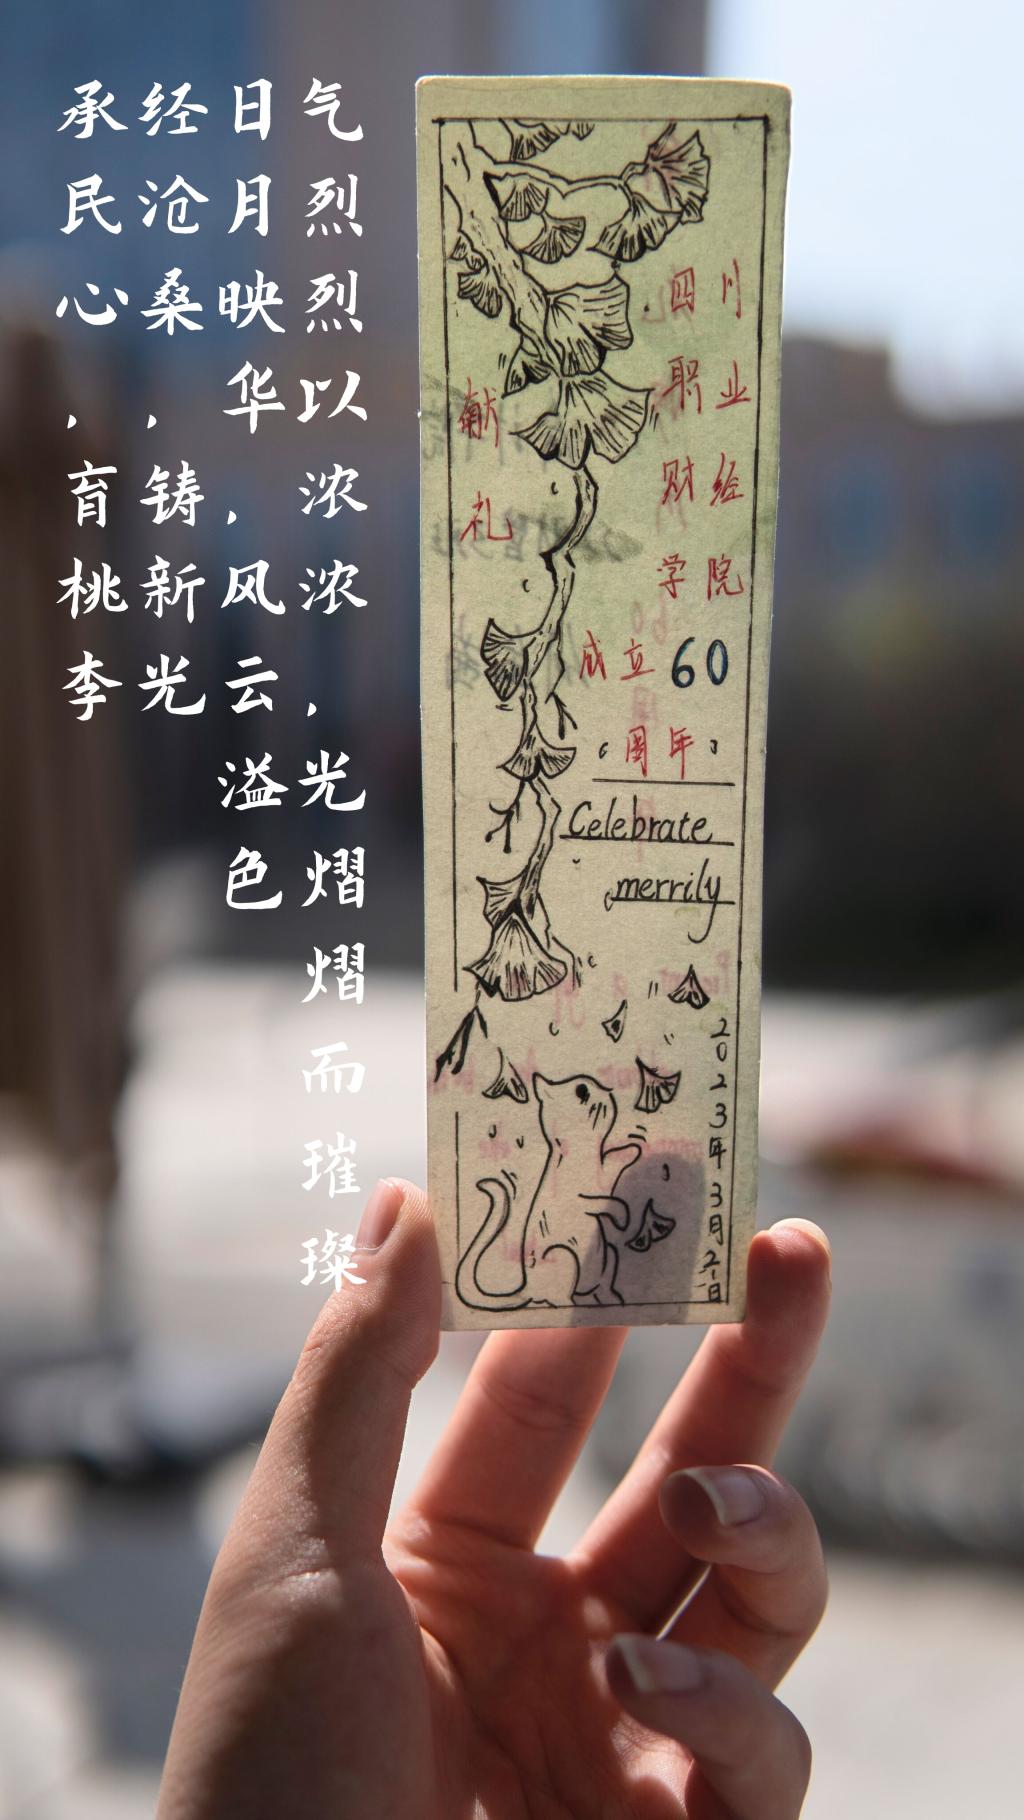 气烈烈以浓浓，光熠熠而璀璨
日月映华，风云溢色
经沧桑，铸新光
承民心，育桃李
献礼
四川
职业
财经
学院
成立60
周年
Celebrate
merrily
2023年3月